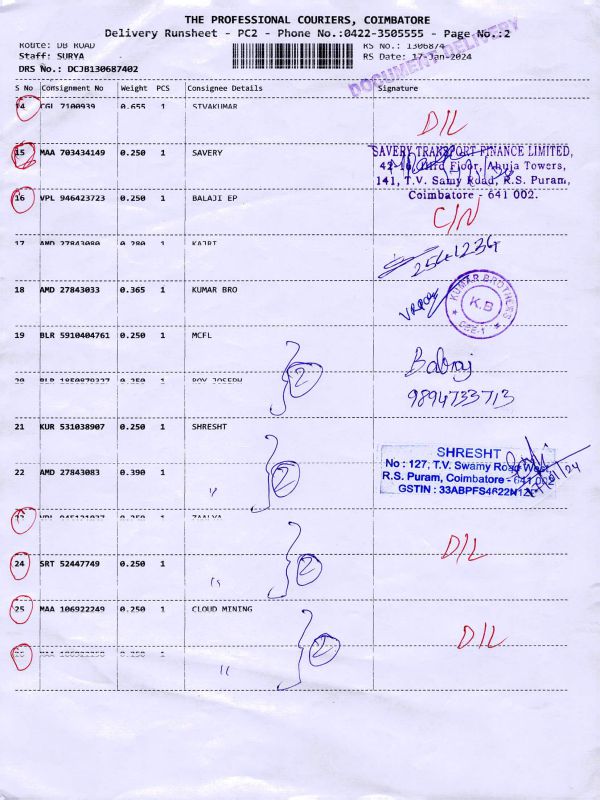 THE PROFESSIONAL COURIERS, COIMBATORE
Delivery Runsheet - PC2 - Phone No.:0422-3505555 - Page No.:2
DOCUMENT DELIVERY
Route: DB ROAD RS No.: 1306874
Staff: SURYA RS Date: 17-Jan-2024
DRS No.: DCJB130687402
S No Consignment No Weight PCS Consignee Details Signature
14 CGL 7100939 0.655 1 SIVAKUMAR
D/L
15 MAA 703434149 0.250 1 SAVERY
SAVERY TRANSPORT FINANCE LIMITED,
Third Floor, Ahuja Towers,
141, T.V. Samy Road, R.S. Puram,
Coimbatore - 641 002.
16 VPL 946423723 0.250 1 BALAJI EP
C/N
17 AMD 27843080 0.280 1
2541234
18 AMD 27843033 0.365 1 KUMAR BRO
KUMAR BROTHERS
K.B
CBE-1
19 BLR 5910404761 0.250 1 MCFL
Balraj
9894733713
20 BLR 0.250 1 ROY JOSEPH
2
21 KUR 531038907 0.250 1 SHRESHT
SHRESHT
No : 127, T.V. Swamy Road West,
R.S. Puram, Coimbatore - 641 002
GSTIN : 33ABPFS4622N1Z
22 AMD 27843083 0.390 1 "
2
23 VPL 0.250 1
D/L
24 SRT 52447749 0.250 1 "
2
25 MAA 106922249 0.250 1 CLOUD MINING
D/L
26 MAA 0.250 1 "
2